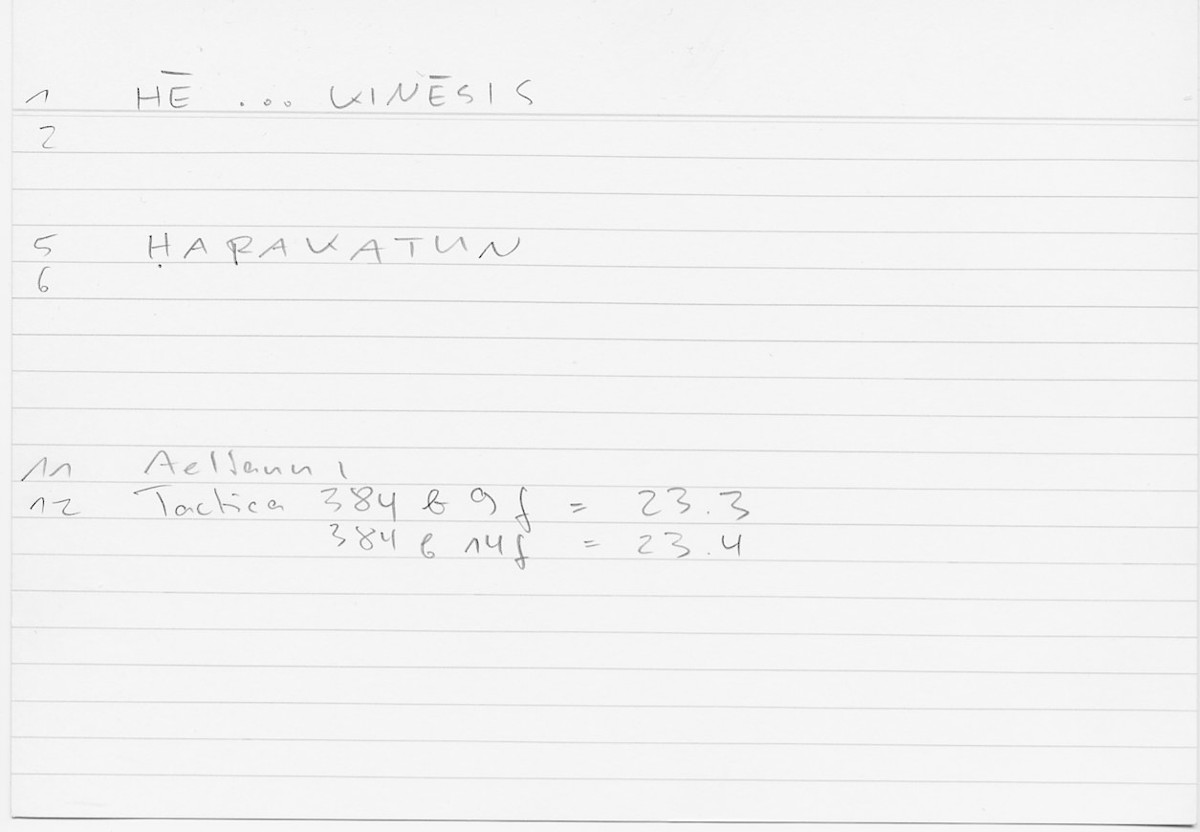 1 HĒ ... KINĒSIS
2
5 ḤARAKATUN
6
11 Aelianun 1
12 Tactica 384 b 9 f = 23.3
384 b 14 f = 23.4